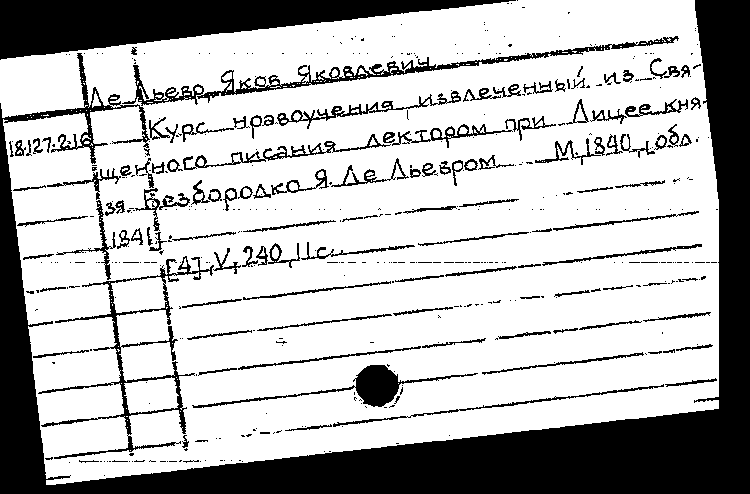 Ле Льевр, Яков Яковлевич
18.127.2.16
Курс нравоучения извлеченный из Свя-
щенного писания лектором при Лицее кня-
зя Безбородко Я. Ле Льевром М, 1840, [обл.
1841].
[4], V, 240, II с.